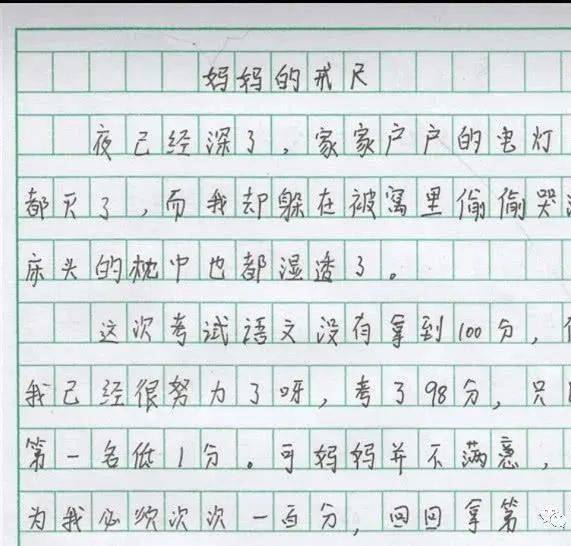 妈妈的戒尺
夜已经深了，家家户户的电灯
都灭了，而我却躲在被窝里偷偷哭
床头的枕巾也都湿透了。
这次考试语文没有拿到100分，
我已经很努力了呀，考了98分，只
第一名低1分。可妈妈并不满意，
为我必须次次一百分，回回拿第